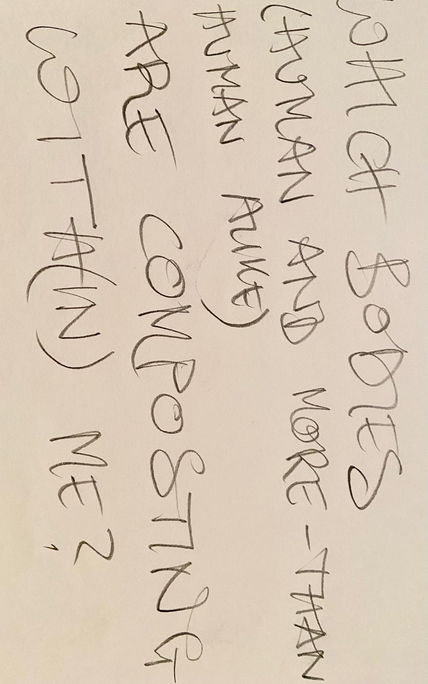 WHICH BODIES
(HUMAN AND MORE-THAN
HUMAN ALIKE)
ARE COMPOSTING
WITH(IN) ME?